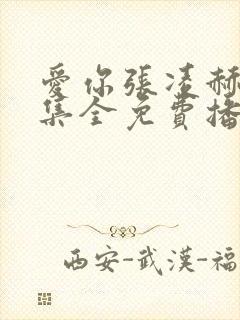 愛你張凌赫
集全免費播
西安-武漢-福